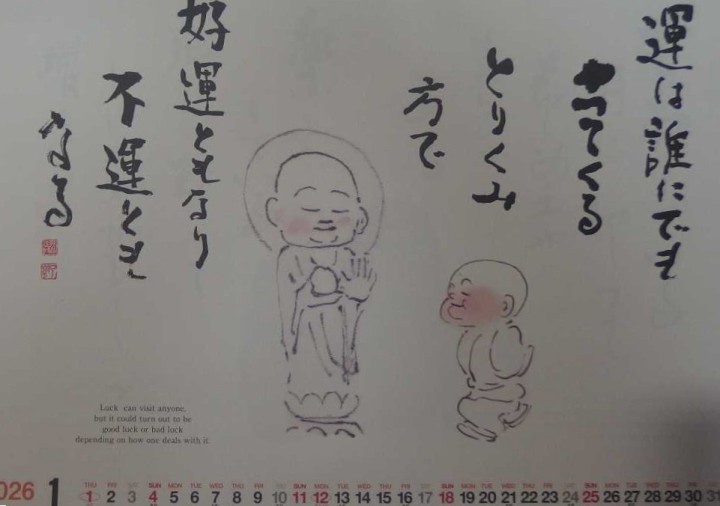 運は誰にでも
やってくる
とりくみ
方で
好運ともなり
不運とも
なる
Luck can visit anyone,
but it could turn out to be
good luck or bad luck
depending on how one deals with it.
026 1
THU FRI SAT SUN MON TUE WED THU FRI SAT SUN MON TUE WED THU FRI SAT SUN MON TUE WED THU FRI SAT SUN MON TUE WED THU FRI
1 2 3 4 5 6 7 8 9 10 11 12 13 14 15 16 17 18 19 20 21 22 23 24 25 26 27 28 29 30 31